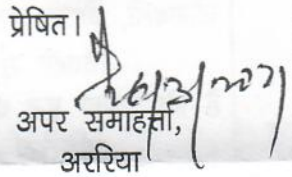 प्रेषित।
अपर समाहर्त्ता,
अररिया